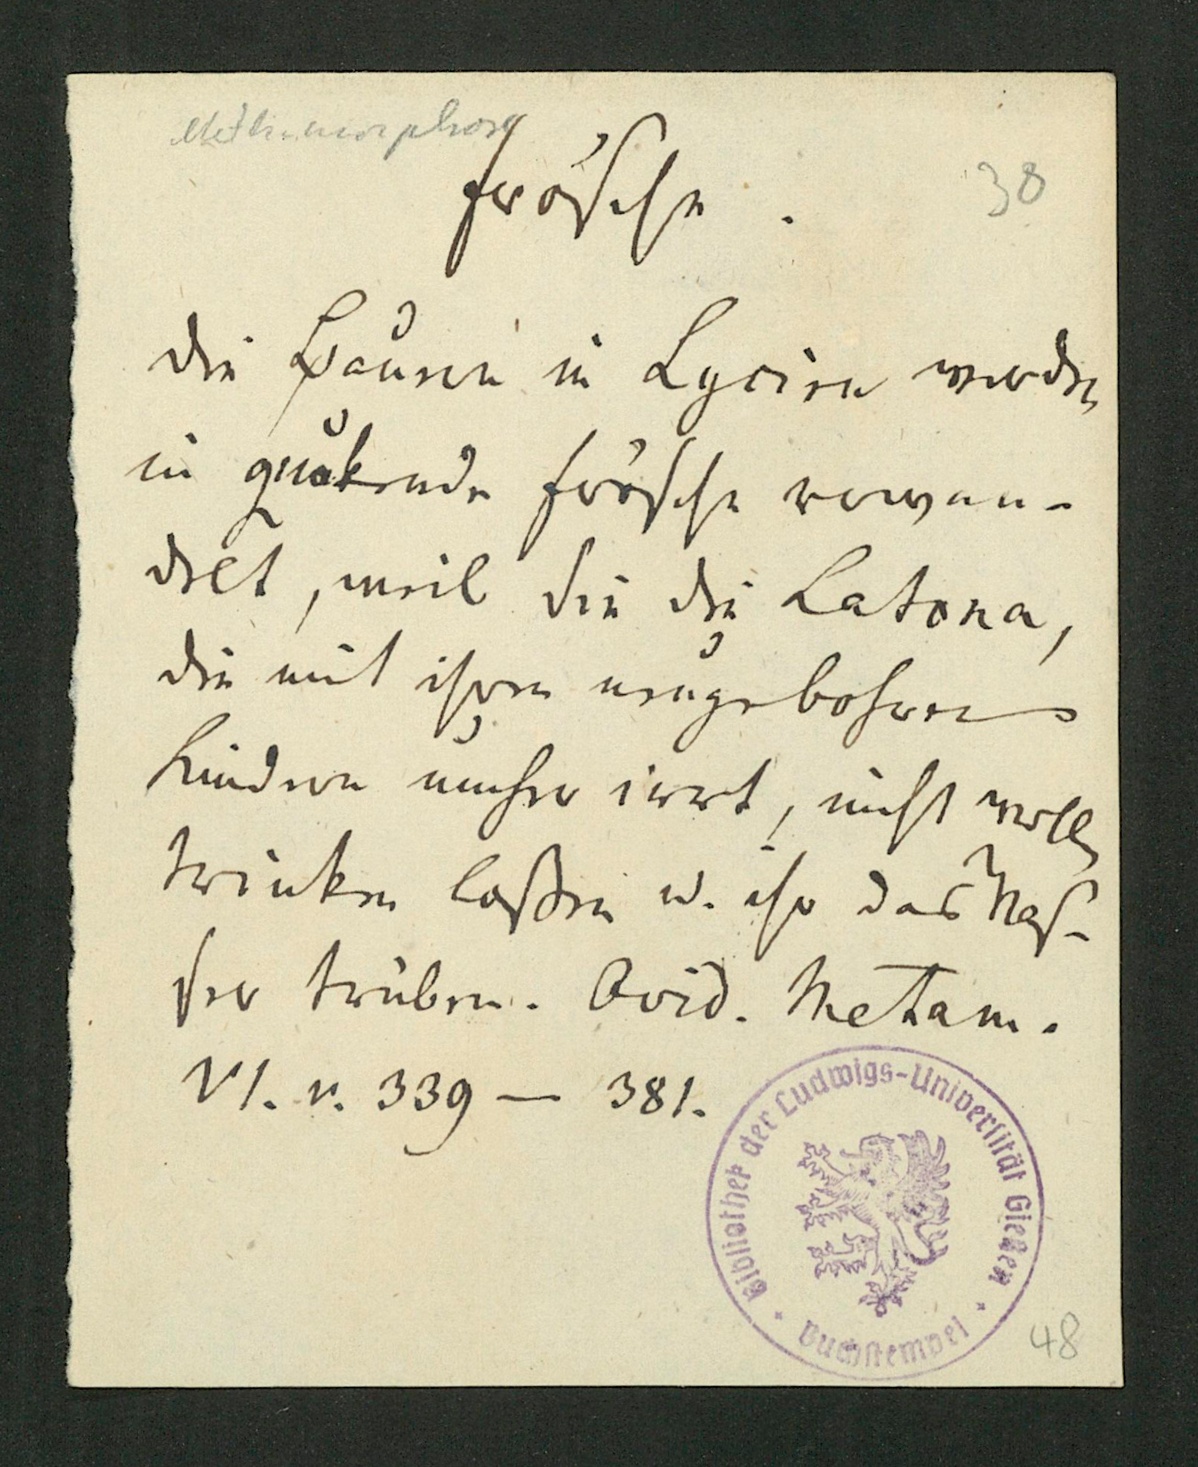 Methamorphose
Frösche.
38
die Bauern in Lycien werden
in quäkende Frösche verwan-
delt, weil sie die Latona,
die mit ihren neugebohrnen
Kindern umher irrt, nicht wollen
trinken laßen u. ihr das Waß-
ser trüben. Ovid. Metam.
VI. v. 339 — 381.
Bibliothek der Ludwigs-Universität Gießen
Buchstempel
48